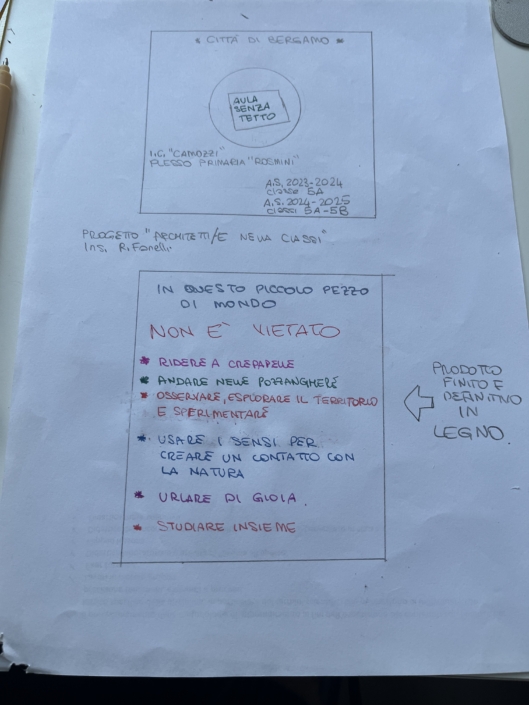 * CITTÀ DI BERGAMO *
AULA
SENZA
TETTO
I.C. "CAMOZZI"
PLESSO PRIMARIA "ROSMINI"
A.S. 2023-2024
classe 5A
A.S. 2024-2025
classi 5A-5B
PROGETTO "ARCHITETTI/E NELLE CLASSI"
Ins. R. Fanelli
IN QUESTO PICCOLO PEZZO
DI MONDO
NON È VIETATO
* RIDERE A CREPAPELLE
* ANDARE NELLE POZZANGHERE
* OSSERVARE, ESPLORARE IL TERRITORIO
E SPERIMENTARE
* USARE I SENSI PER
CREARE UN CONTATTO CON
LA NATURA
* URLARE DI GIOIA.
* STUDIARE INSIEME
PRODOTTO
FINITO E
DEFINITIVO
IN
LEGNO.